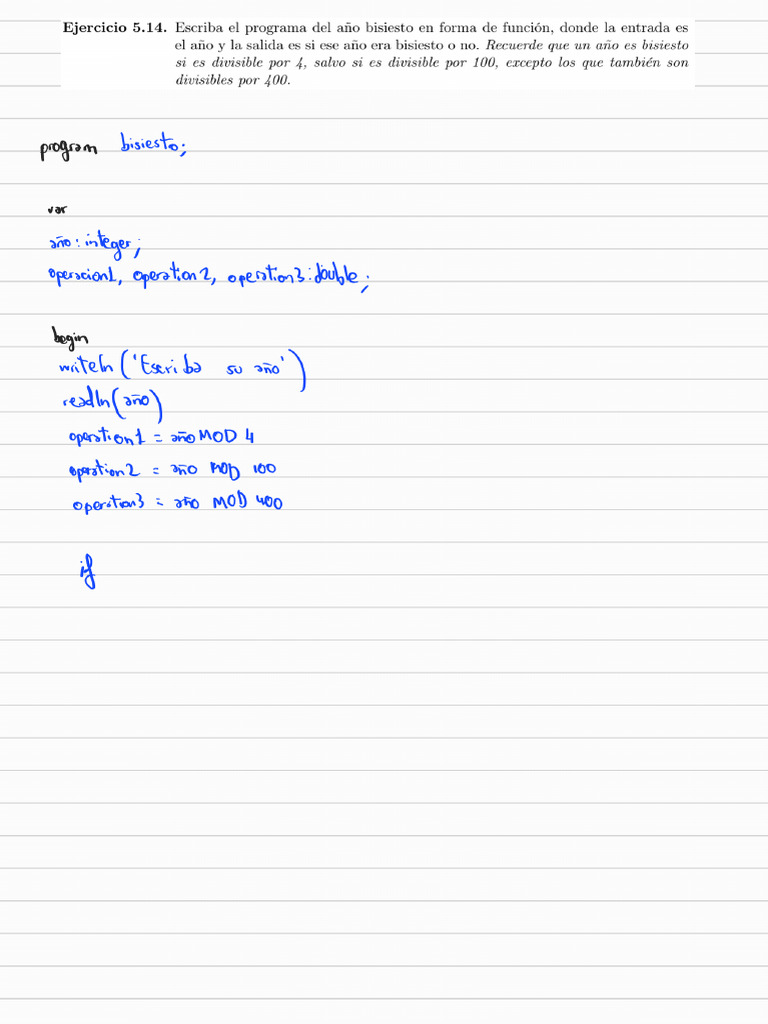 Ejercicio 5.14. Escriba el programa del año bisiesto en forma de función, donde la entrada es
el año y la salida es si ese año era bisiesto o no. Recuerde que un año es bisiesto
si es divisible por 4, salvo si es divisible por 100, excepto los que también son
divisibles por 400.
program bisiesto;
var
año: integer;
operacion1, operation2, operation3: double;
begin
writeln ('Escriba su año')
readln (año)
operation1 = año MOD 4
operation2 = año MOD 100
operation3 = año MOD 400
if